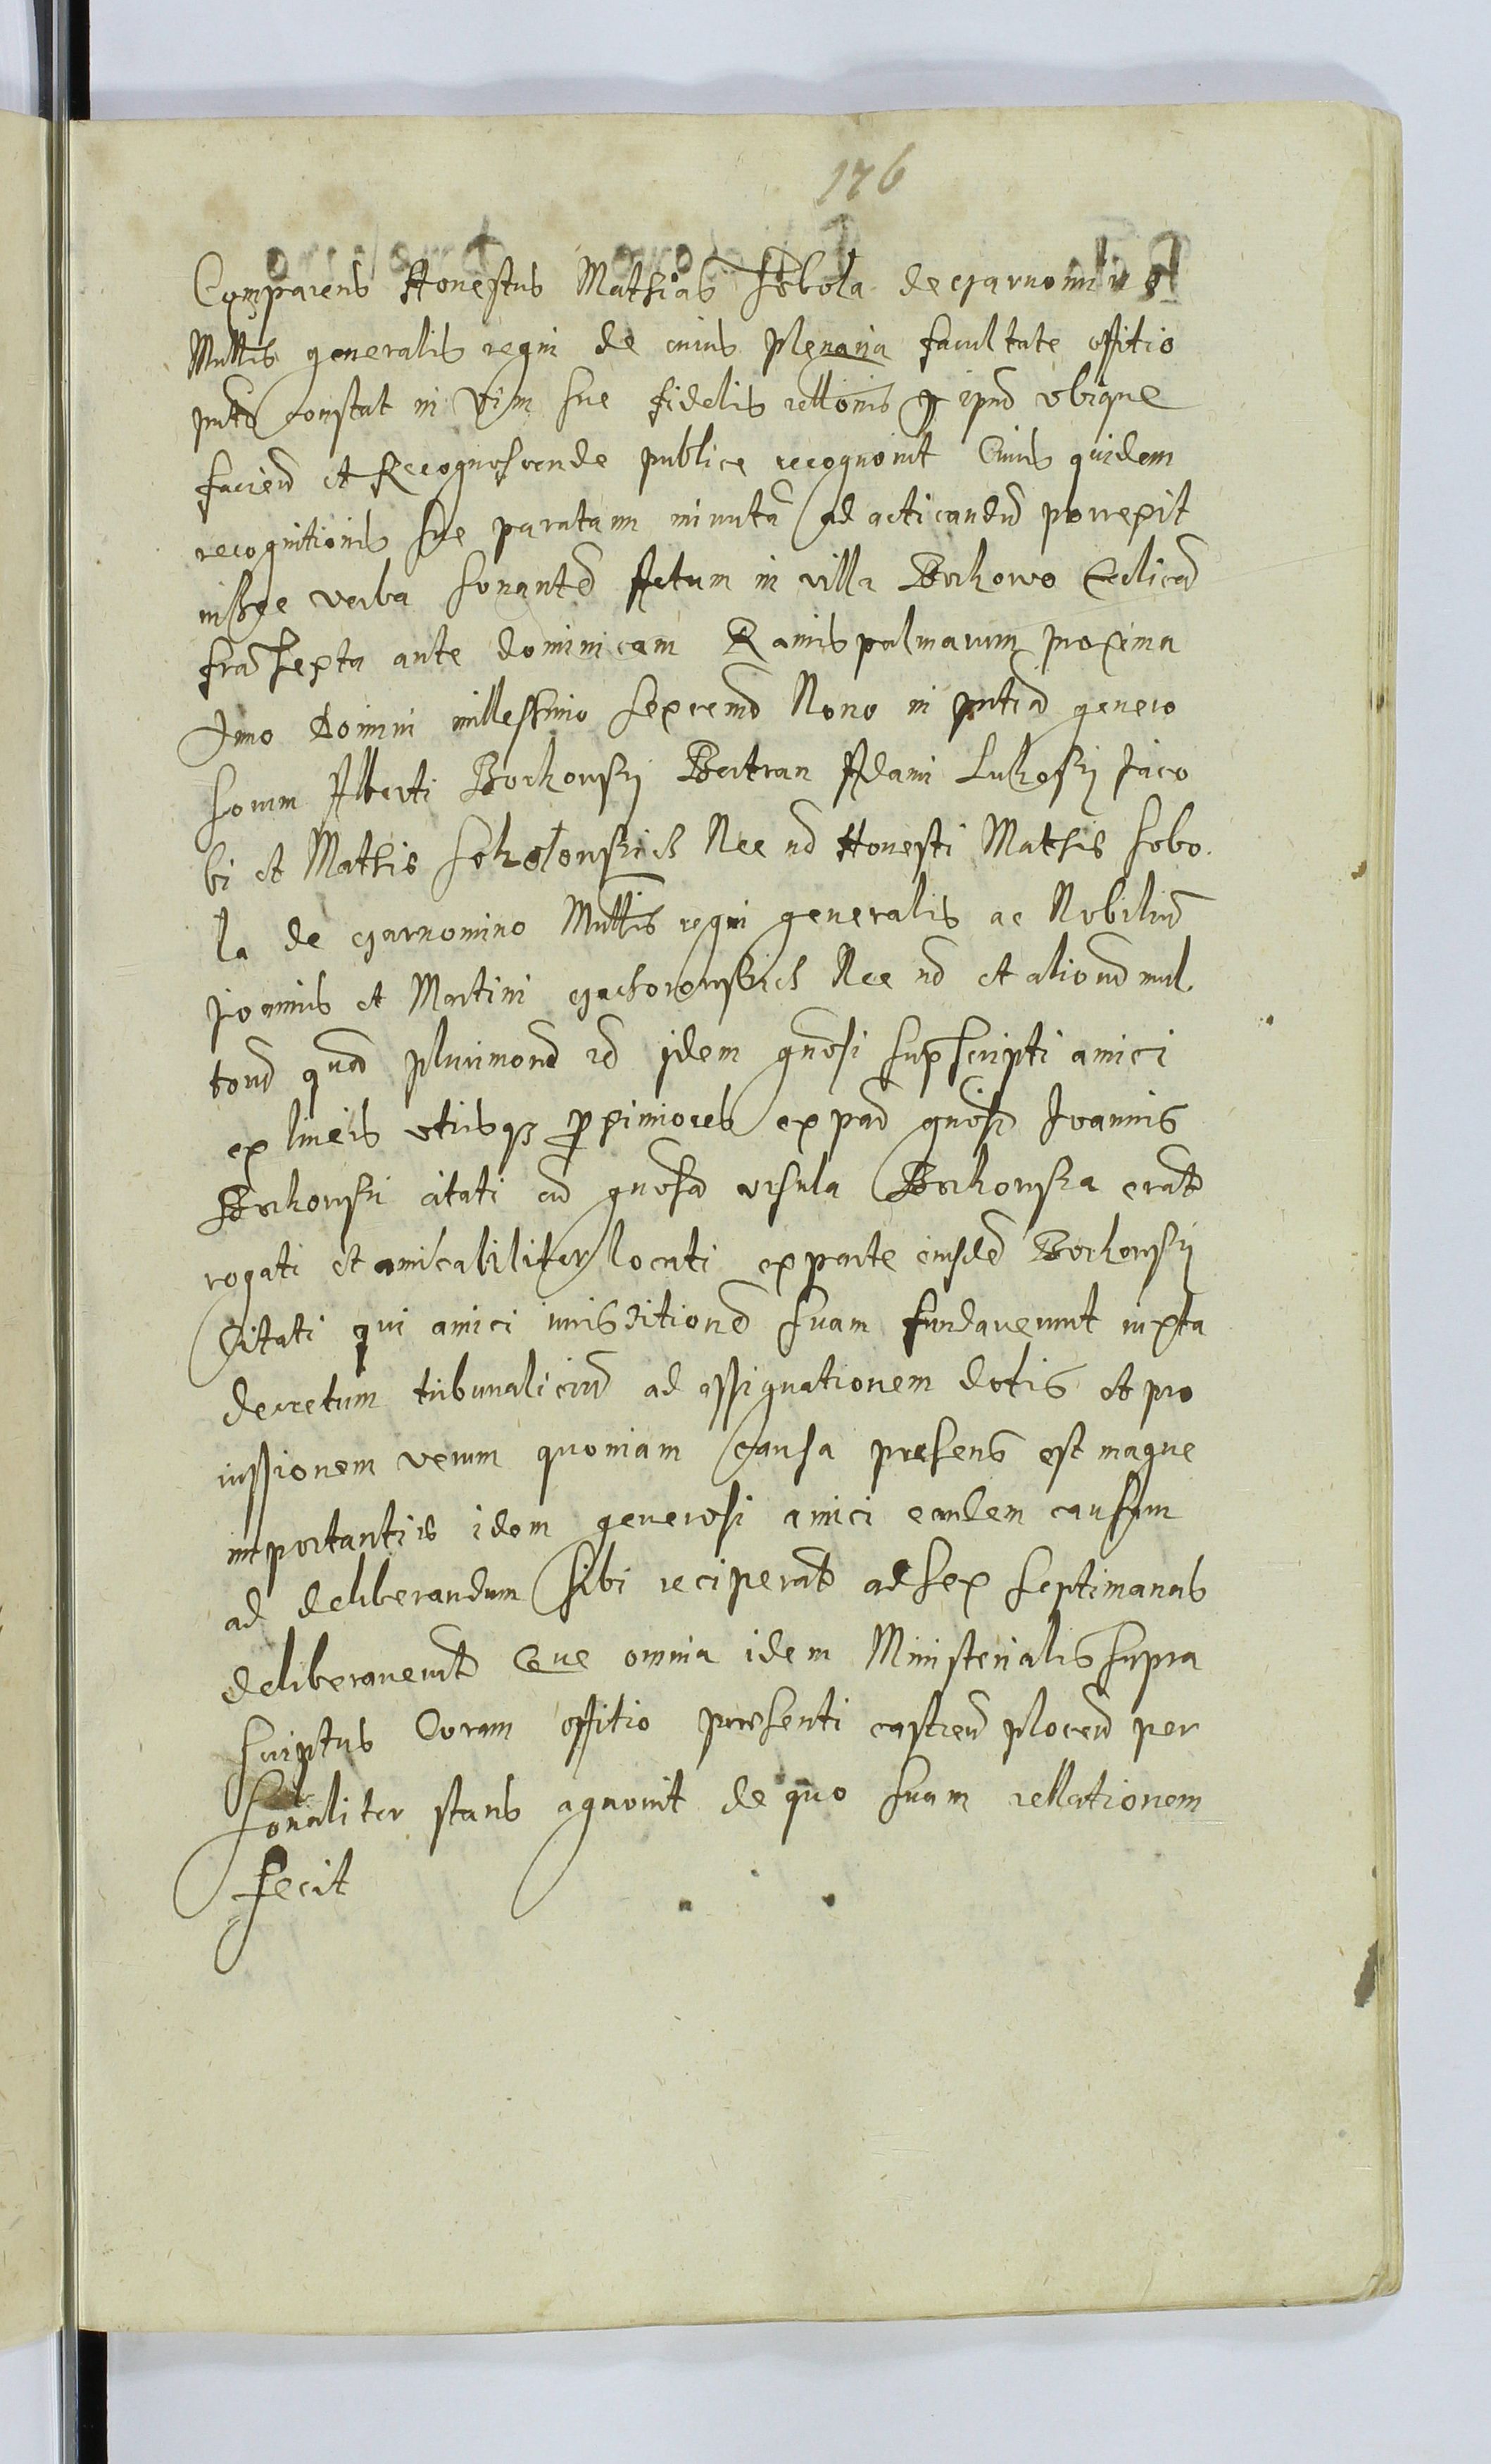 176
Comparens Honestus Mathias Sobola de czarnomino
Mnltis generalis regni de cuius plenaria facultate offitio
pnti constat in vim sue fidelis rellonis p ipm vbique
faciend et Recognoscende publice recognovit Cuius quidem
recognitionis sue paratam minuta ad acticandum porrexit
in hec verba sonantem Actum in villa Borkowo
fria sexta ante dominicam Ramispalmarum proxima
Anno Domini millessimo sexcen Nono in pntia genero
sorum Alberti Borkowskj Bertran Adami Lukoskj Jaco
bi et Mathis Sokolowskich Nec no Honesti Mathis Sobo
la de czarnomino Mnltis regni generalis ac Nobilium
Joannis et Martini czachorowskich Nec no et aliorum mul
torum quam plurimorum idem gnosi suprascripti amici
ex lineis vtrisqz proximiores ex par gnosi Joannis
Borkowski citati cum gnosa vrsula Borkowska erant
rogati et amicabiliter locati ex parte eiusdem Borkowskj
Citati qui amici iurisditionem suam fundaverunt iuxta
decretum tribunalicium ad assignationem dotis et pro
uissionem verum quoniam causa presens est magne
importantiis idem generosi amici eandem causam
ad deliberandum sibi reciperant ad sex septimanas
deliberaverunt Que omnia idem Ministerialis supra
scriptus Coram offitio presenti castren plocen per
sonaliter stans agnovit de quo suam rellationem
fecit